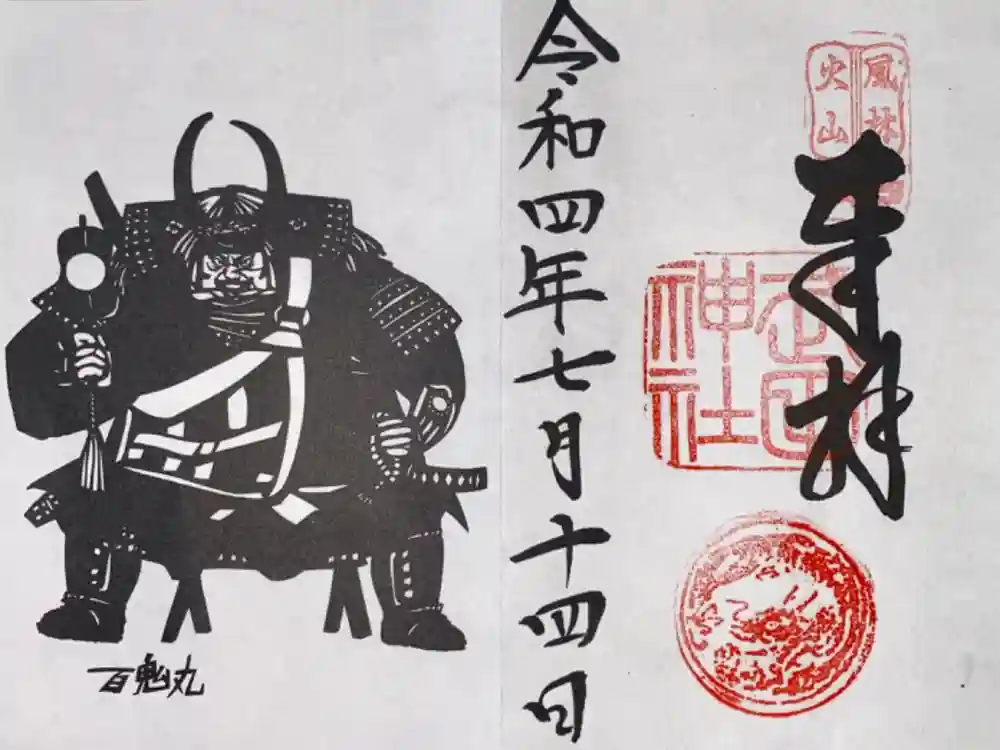 風林
火山
奉拝
武田
神社
令和四年七月十四日
百鬼丸